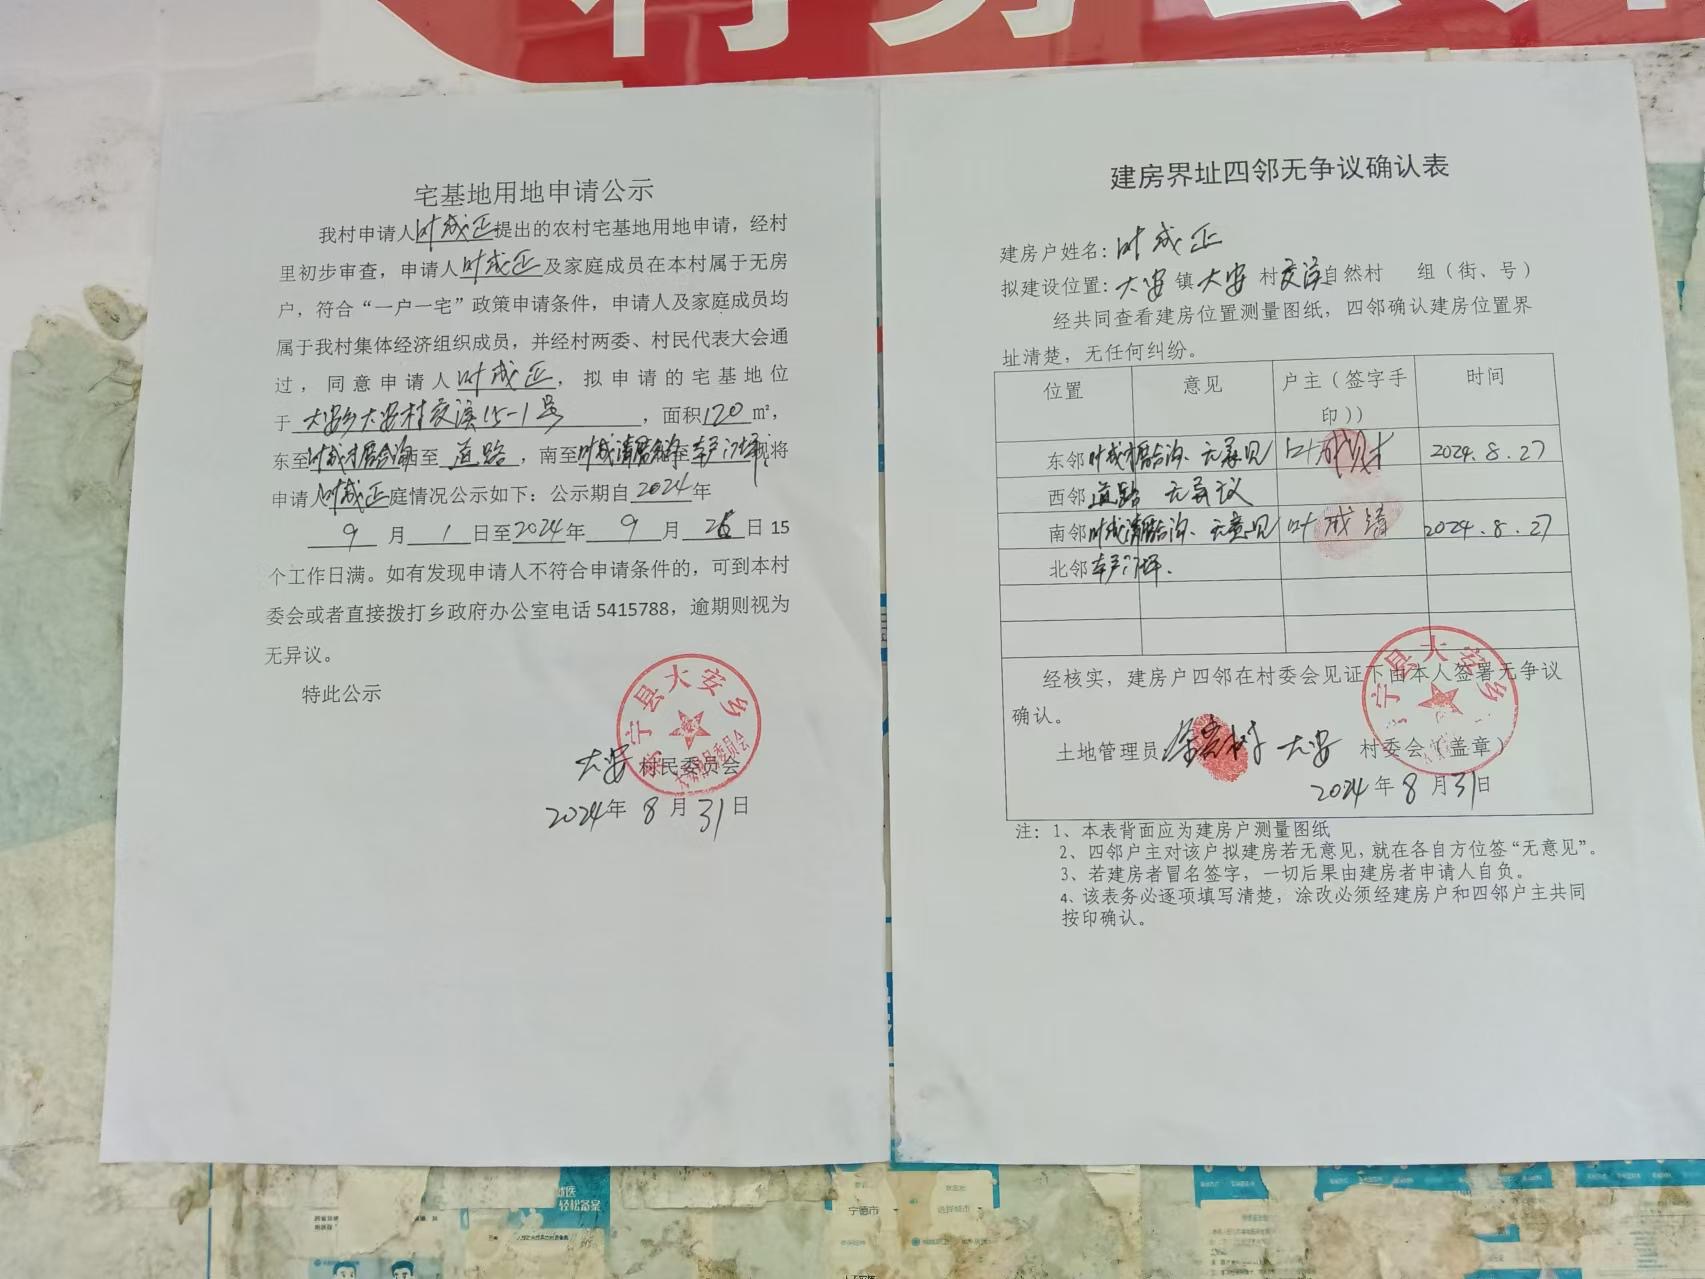 宅基地用地申请公示
我村申请人叶成正提出的农村宅基地用地申请，经村
里初步审查，申请人叶成正及家庭成员在本村属于无房
户，符合“一户一宅”政策申请条件，申请人及家庭成员均
属于我村集体经济组织成员，并经村两委、村民代表大会通
过，同意申请人叶成正，拟申请的宅基地位
于大安乡大安村交溪15-1号，面积120㎡，
东至叶成材居合沟西至道路，南至叶成清居合沟至本户门坪现将
申请人叶成正庭情况公示如下：公示期自2024年
9月1日至2024年9月26日15
个工作日满。如有发现申请人不符合申请条件的，可到本村
委会或者直接拨打乡政府办公室电话5415788，逾期则视为
无异议。
特此公示
寿宁县大安乡
大安村民委员会
2024年8月31日
建房界址四邻无争议确认表
建房户姓名：叶成正
拟建设位置：大安镇大安村交溪自然村 组（街、号）
经共同查看建房位置测量图纸，四邻确认建房位置界
址清楚，无任何纠纷。
位置 意见 户主（签字手印）） 时间
东邻叶成材居合沟、无意见 叶成材 2024.8.27
西邻道路 无异议
南邻叶成清居合沟、无意见 叶成清 2024.8.27
北邻本户门坪.
经核实，建房户四邻在村委会见证下由本人签署无争议
确认。
宁县大安乡
土地管理员 大安 村委会（盖章）
2024年8月31日
注：1、本表背面应为建房户测量图纸
2、四邻户主对该户拟建房若无意见，就在各自方位签“无意见”。
3、若建房者冒名签字，一切后果由建房者申请人自负。
4、该表务必逐项填写清楚，涂改必须经建房户和四邻户主共同
按印确认。
轻松备案
宁德市
选择城市